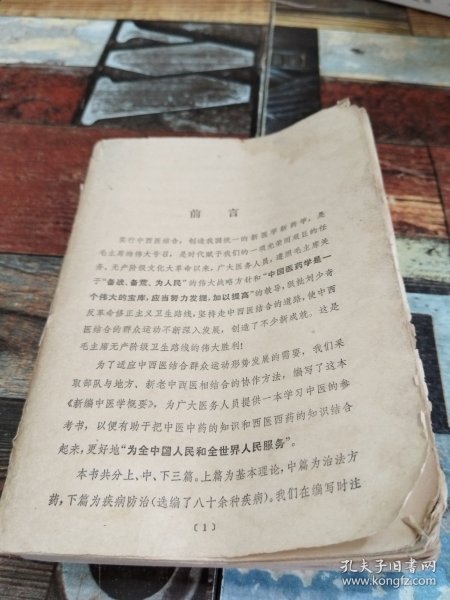 前言
实行中西医结合，创造我国统一的新医学新药学，是
毛主席的伟大号召，是时代赋予我们的一项光荣而艰巨的任
务。无产阶级文化大革命以来，广大医务人员，遵照毛主席关
于“备战、备荒、为人民”的伟大战略方针和“中国医药学是一
个伟大的宝库，应当努力发掘，加以提高”的教导，狠批刘少奇
反革命修正主义卫生路线，坚持走中西医结合的道路，使中西
医结合的群众运动不断深入发展，创造了不少新成就。这是
毛主席无产阶级卫生路线的伟大胜利！
为了适应中西医结合群众运动形势发展的需要，我们采
取部队与地方、新老中西医相结合的协作方法，编写了这本
《新编中医学概要》，为广大医务人员提供一本学习中医的参
考书，以便有助于把中医中药的知识和西医西药的知识结合
起来，更好地“为全中国人民和全世界人民服务”。
本书共分上、中、下三篇。上篇为基本理论，中篇为治法方
药，下篇为疾病防治（选编了八十余种疾病）。我们在编写时注
（1）
孔夫子旧书网
www.kongfz.com